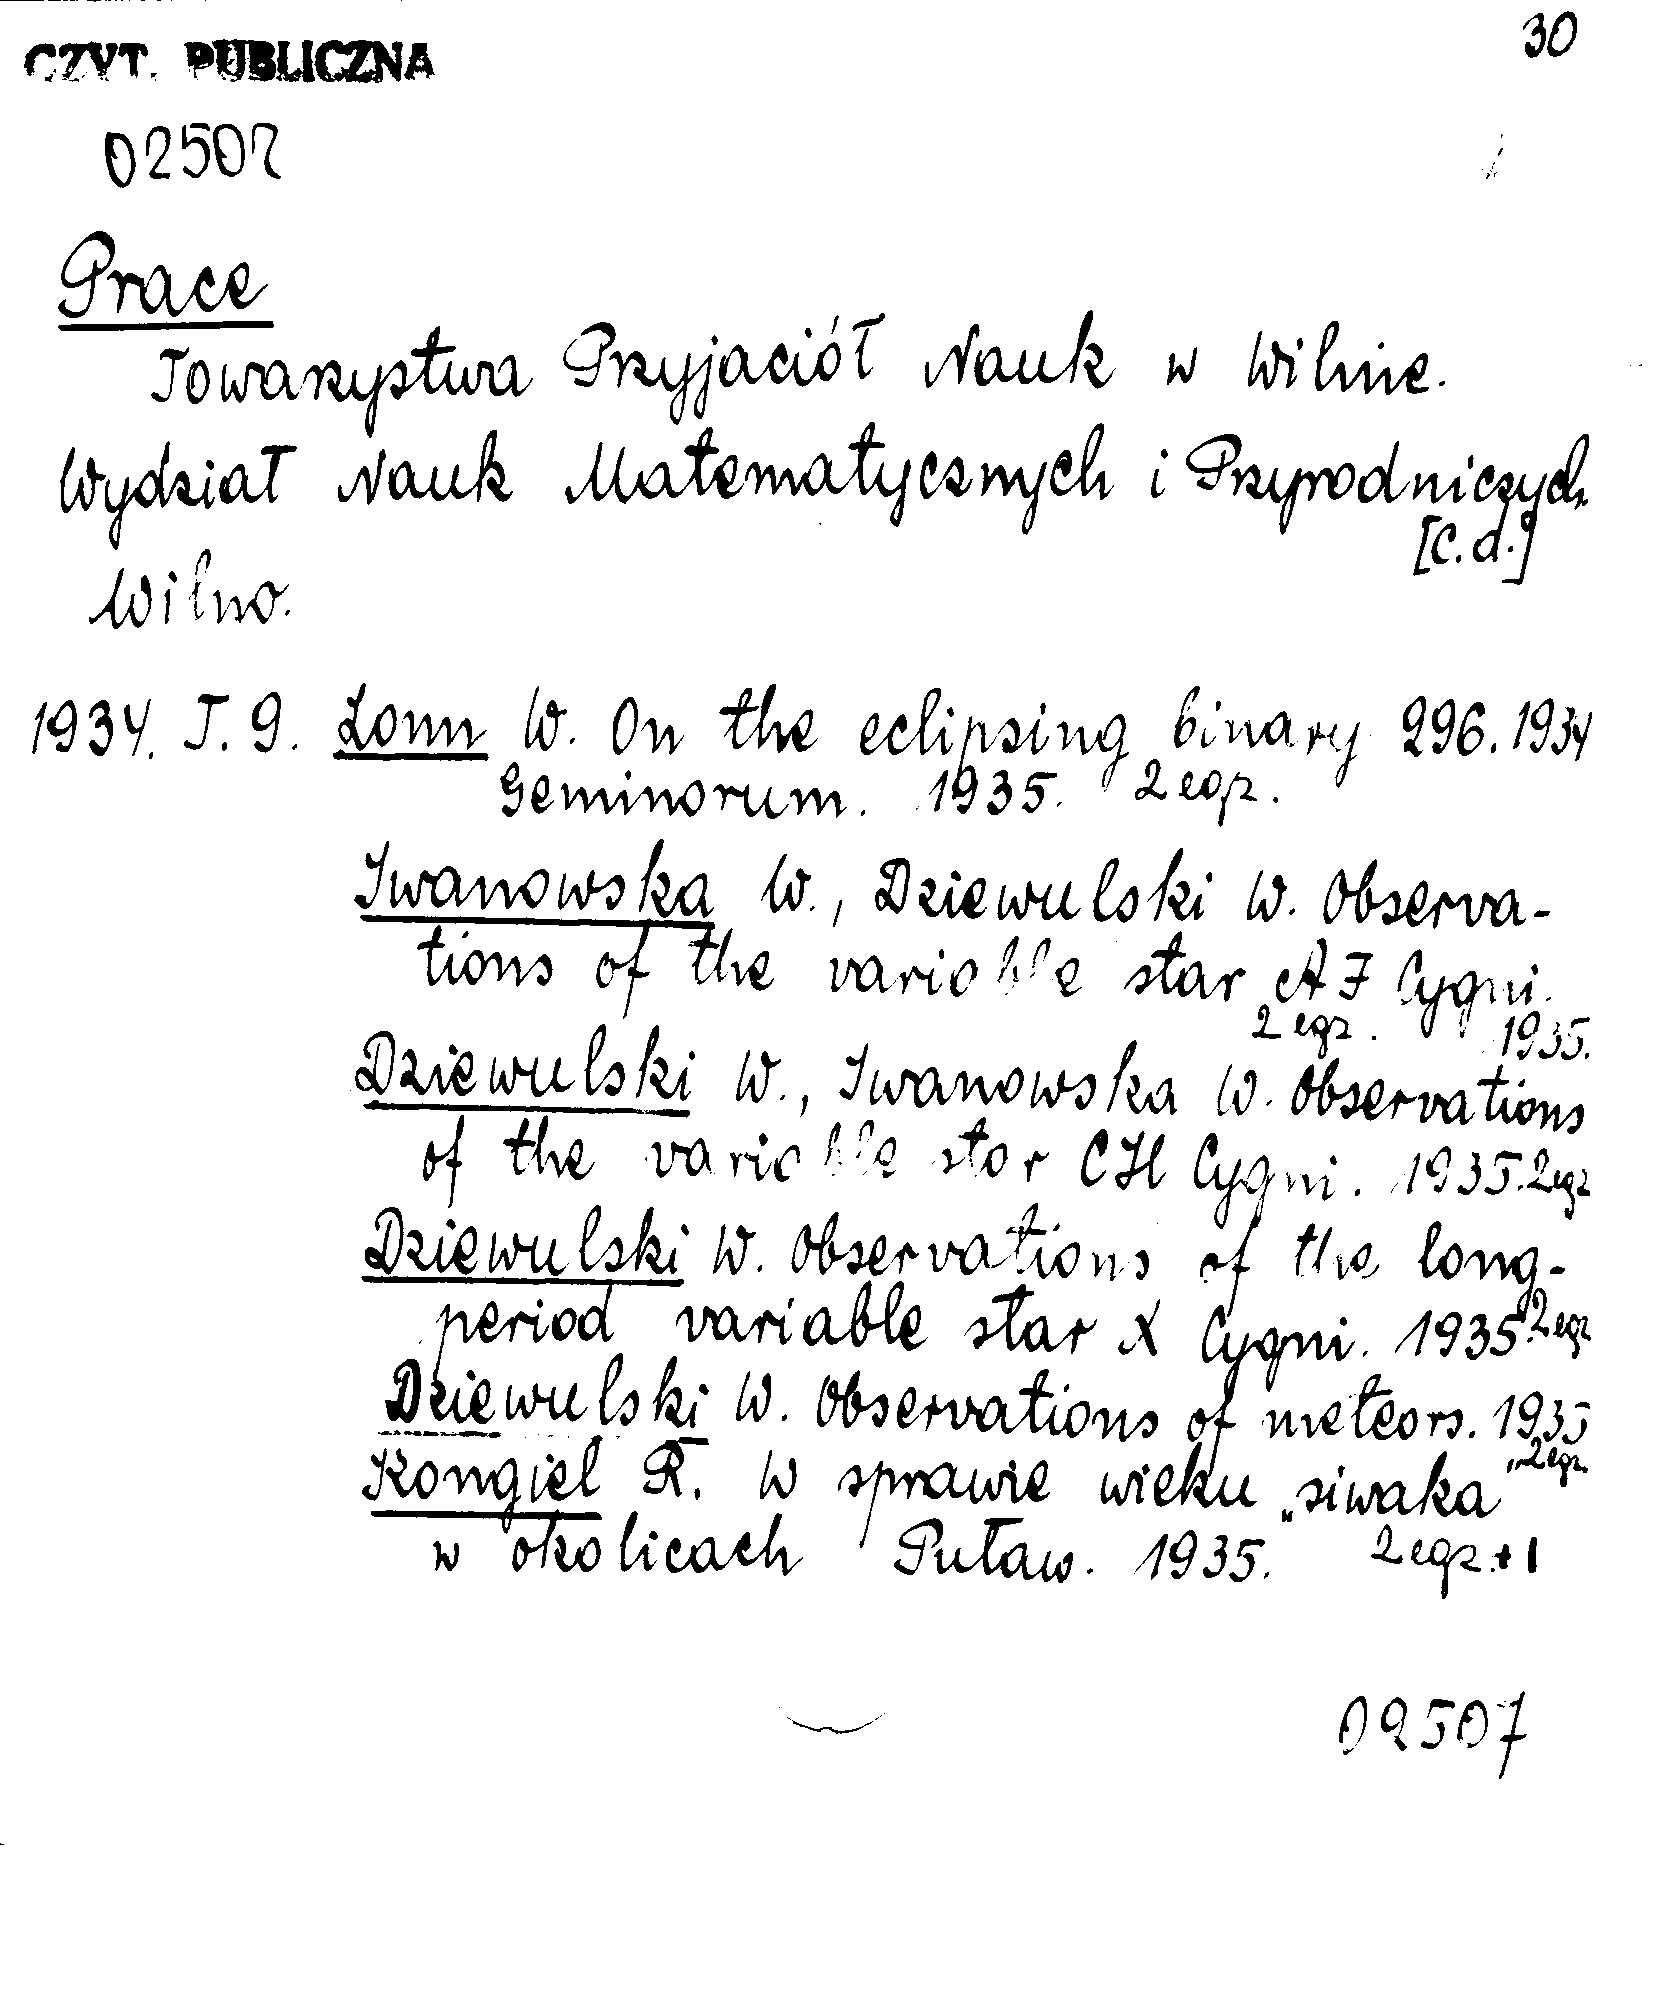 30
CZYT. PUBLICZNA
02507
Prace
Towarzystwa Przyjaciół Nauk w Wilnie.
Wydział Nauk Matematycznych i Przyrodniczych.
[C.d.]
Wilno.
1934. T. 9. Zonn W. On the eclipsing binary 296.1934
Geminorum. 1935. 2 egz.
Iwanowska W., Dziewulski W. Observa-
tions of the variable star AF Cygni.
2 egz. 1935.
Dziewulski W., Iwanowska W. Observations
of the variable star CH Cygni. 1935. 2egz
Dziewulski W. Observations of the long-
period variable star X Cygni. 1935. 2egz
Dziewulski W. Observations of meteors. 1935
2egz.
Kongiel R. W sprawie wieku „siwaka"
w okolicach Puław. 1935. 2 egz. + 1
02507